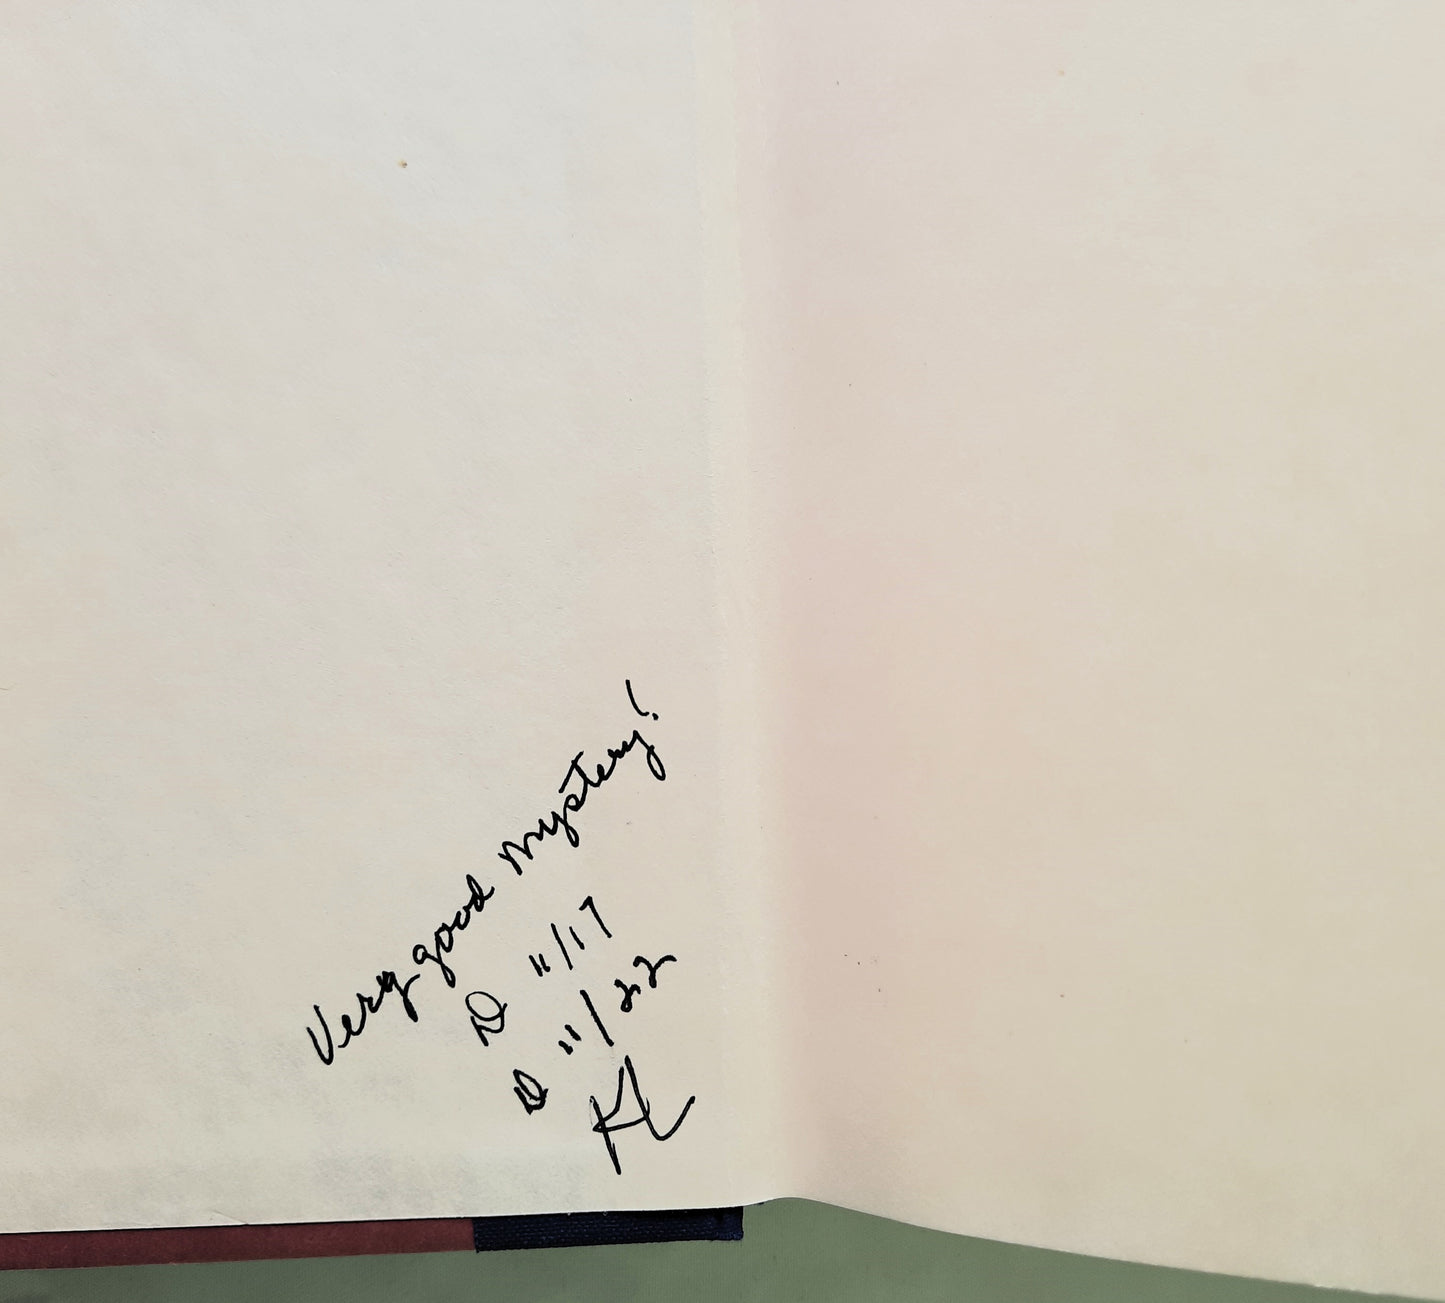 Very good mystery!
D 11/17
D 11/22
KL